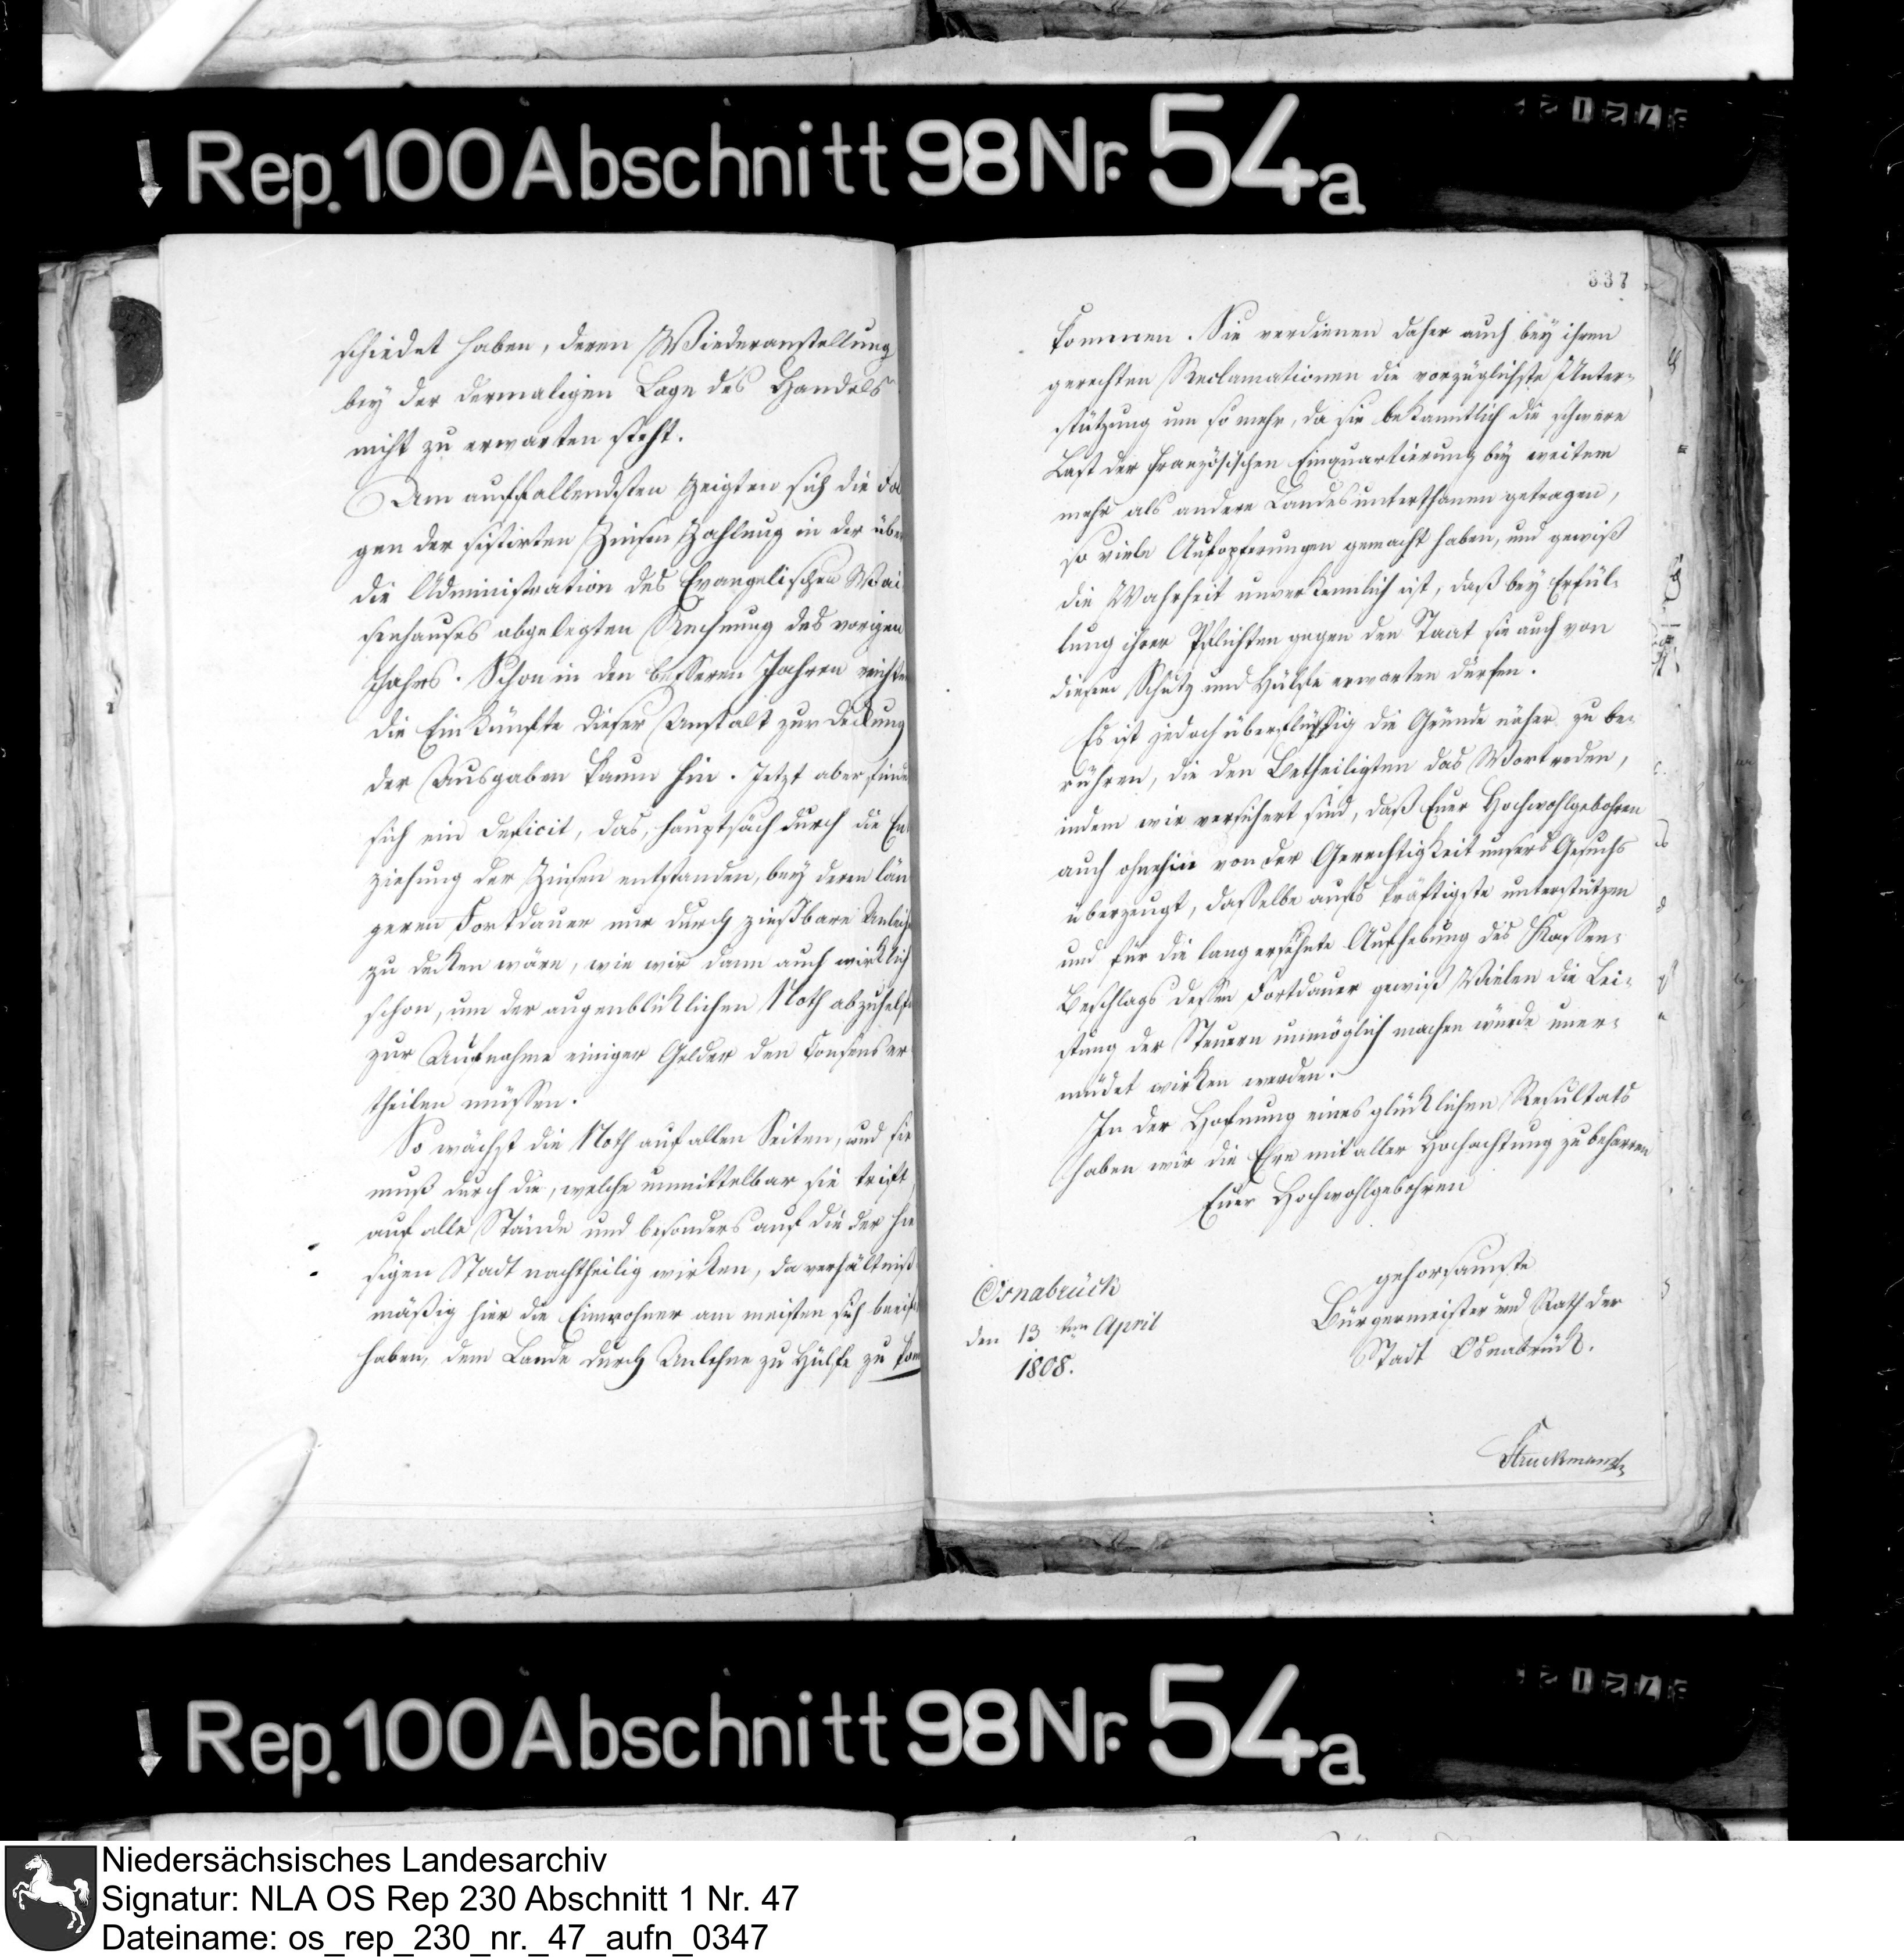 Rep. 100 Abschnitt 98 Nr. 54a
schiedet haben, deren Wiederanstellung
bey der dermaligen Lage des Handels
nicht zu erwarten steht.
Am auffallendsten zeigten sich die Fol
gen der sistirten Zinsen Zahlung in der über
die Administration des Evangelischen Wai
senhauses abgelegten Rechnung des vorigen
Jahrs. Schon in den besseren Jahren reichten
die Einkünfte dieser Anstalt zur Deckung
der Ausgaben kaum hin. Jetzt aber findet
sich ein Deficit, das, hauptsäch durch die En
ziehung der Zinsen entstanden, bey deren län
geren Fortdauer nur durch zinßbare Anleihe
zu decken wäre, wie wir dann auch wirklich
schon, um der augenblicklichen Noth abzuhelfe
zur Aufnahme einiger Gelder den Consens er
theilen müssen.
So wächst die Noth auf allen Seiten, und sie
muß durch die, welche unmittelbar sie trift,
auf alle Stände und besonders auf die der hie
sigen Stadt nachtheilig wirken, da verhältniß
mäßig hier die Einwohner am meisten sich beeif
haben, dem Lande durch Anlehne zu Hülfe zu kom
337
kommen. Sie verdienen daher auch bey ihren
gerechten Reclamationen die vorzüglichste Unter-
stützung um so mehr, da sie bekanntlich die schwere
Last der französischen Einquartierung bey weitem
mehr als andere Landesunterthanen getragen,
so viele Aufopferungen gemacht haben, und gewiß
die Wahrheit unverkennlich ist, daß bey Erfül-
lung ihrer Pflichten gegen den Staat sie auch von
diesem Schutz und Hülfe erwarten dürfen.
Es ist jedoch überflüssig die Gründe näher zu be-
rühren, die den Betheiligten das Wort reden,
indem wir versichert sind, daß Euer Hochwohlgebohren
auch ohnehin von der Gerechtigkeit unsers Gesuchs
überzeugt, dasselbe aufs kräftigste unterstützen
und für die lang ersehnte Aufhebung des Kassen-
Beschlags dessen Fortdauer gewiß Vielen die Lei-
stung der Steuern unmöglich machen würde uner-
müdet wirken werden.
In der Hofnung eines glücklichen Resultats
haben wir die Ehre mit aller Hochachtung zu beharren
Euer Hochwohlgebohren
gehorsamste
Bürgermeister und Rath der
Stadt Osnabrück.
Osnabrück
den 13 ten April
1808.
Struckmann
Rep. 100 Abschnitt 98 Nr. 54a
Niedersächsisches Landesarchiv
Signatur: NLA OS Rep 230 Abschnitt 1 Nr. 47
Dateiname: os_rep_230_nr._47_aufn_0347